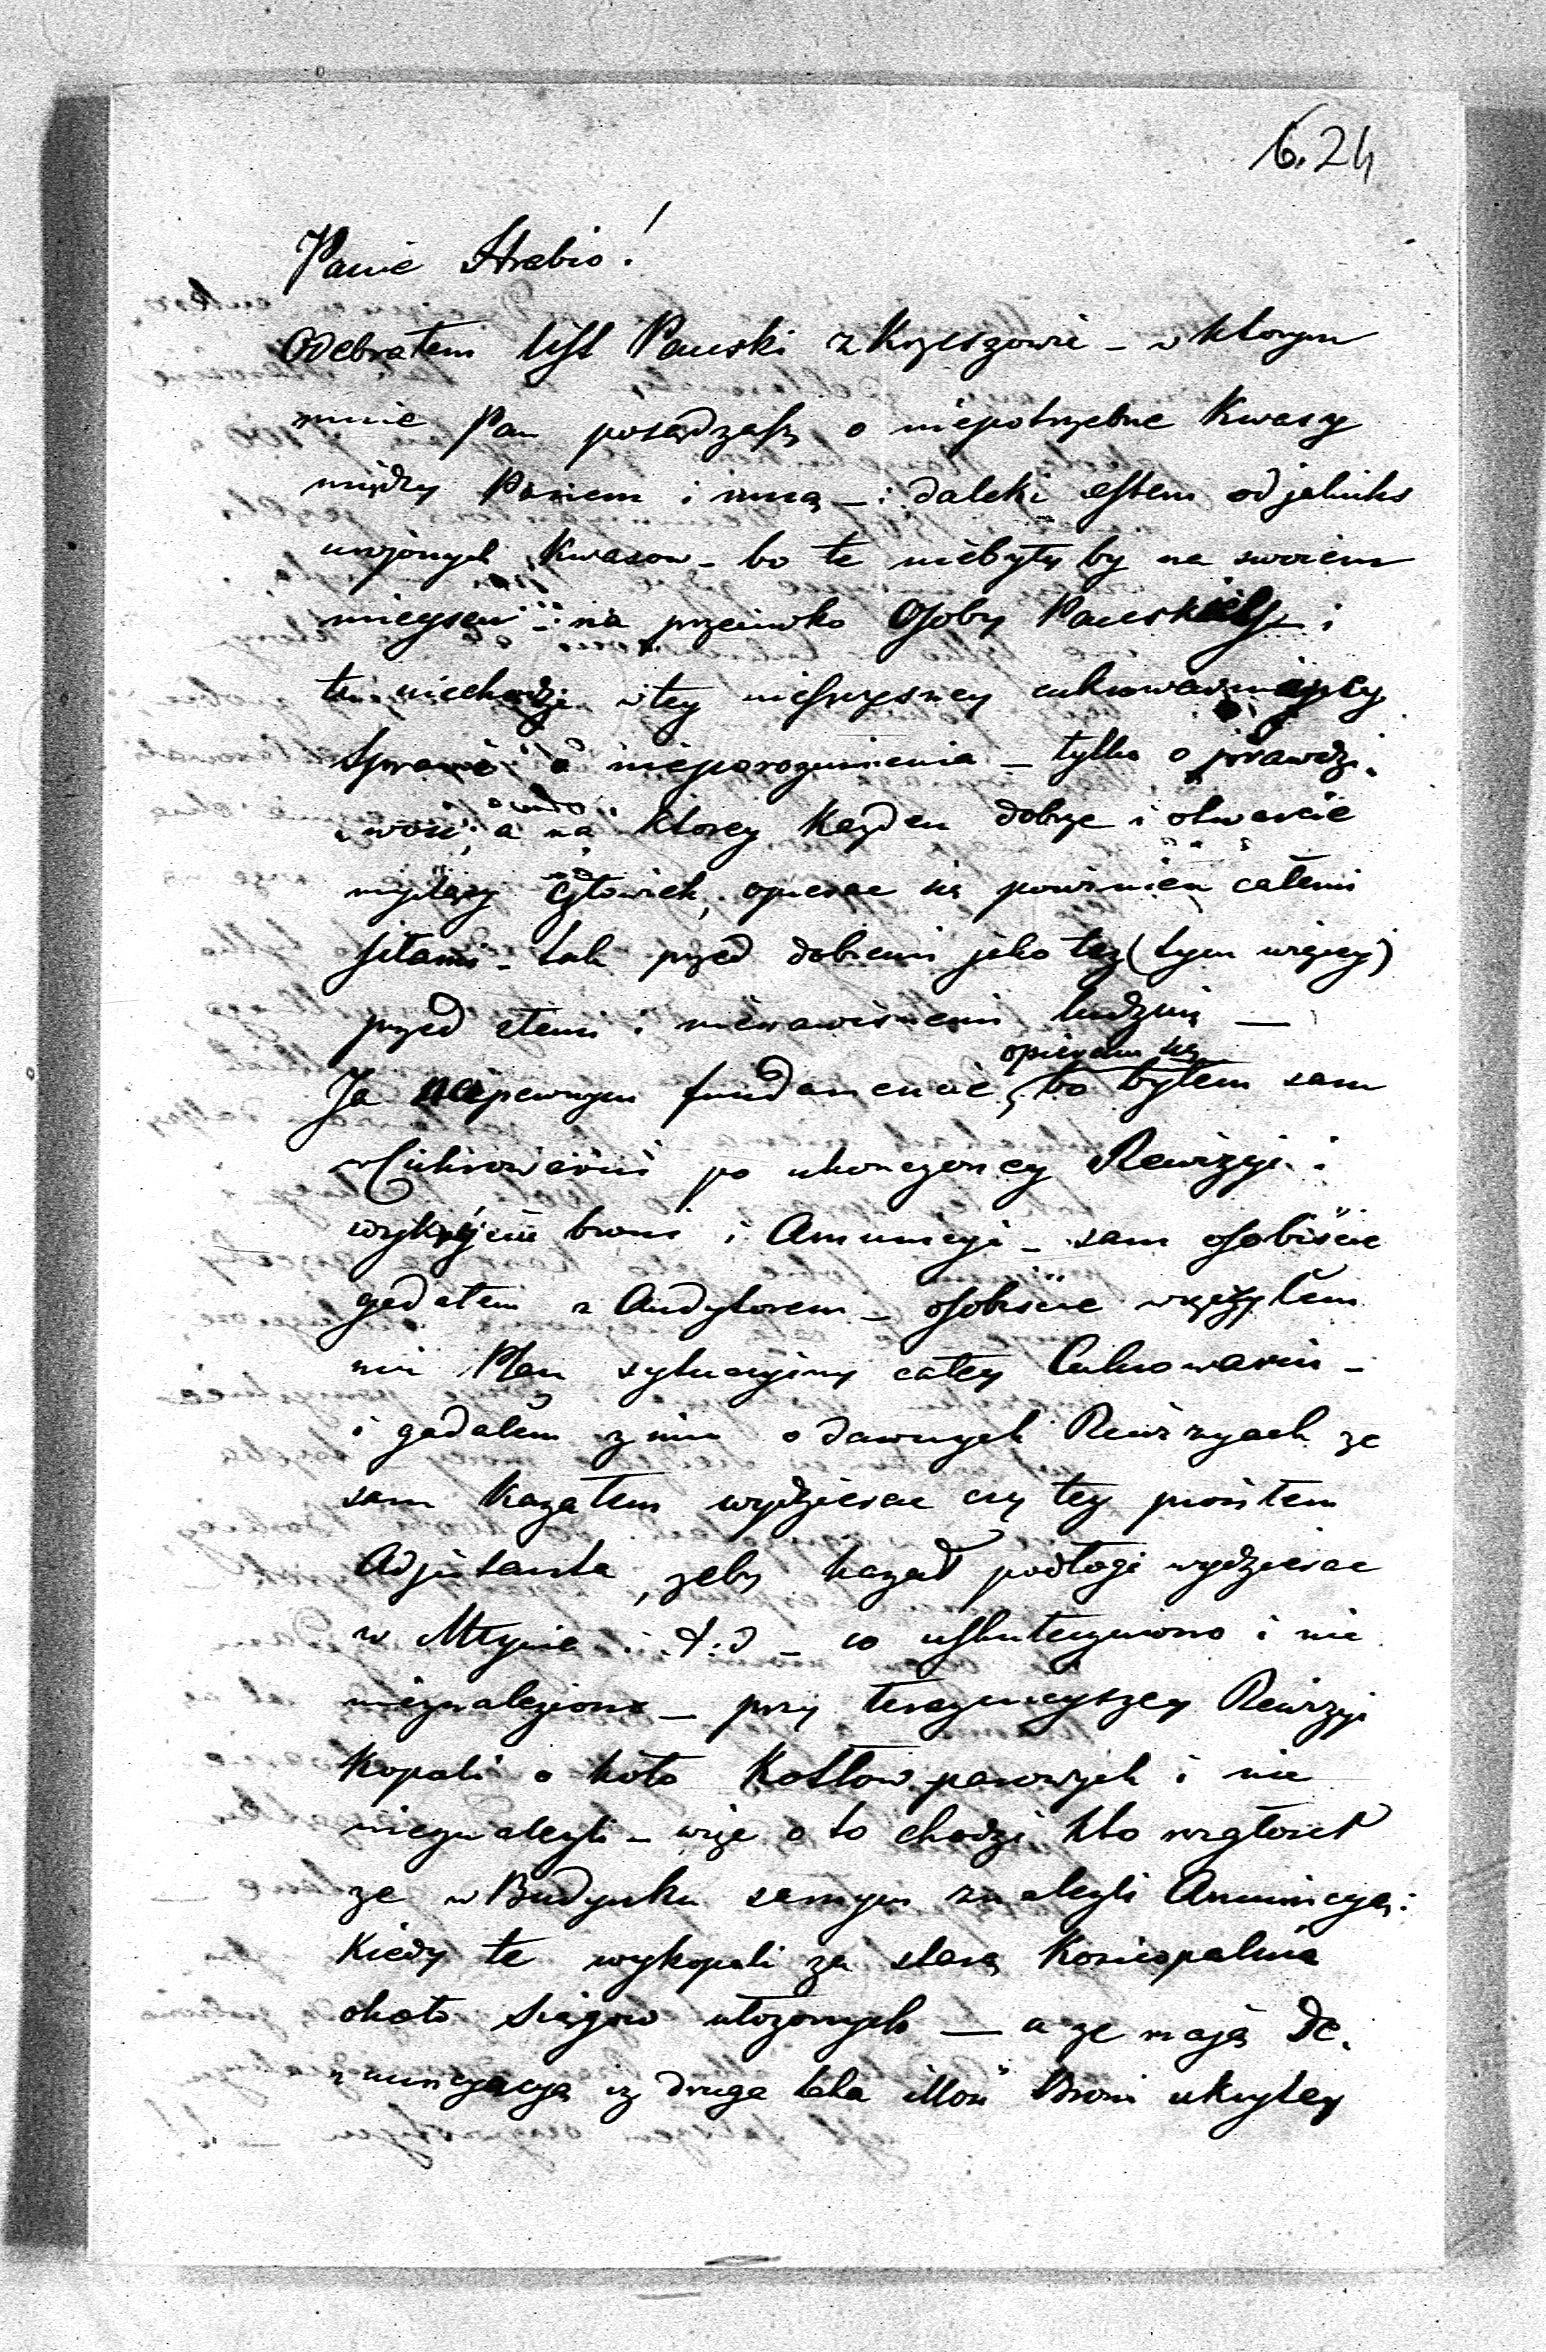 6.24
Panie Hrabio!
Odebrałem list Pański z Krzeszowic – w ktorym
mnie Pan posądzasz o niepotrzebne Kwasy
między Panem i mną – i daleki estem od jakichs
urojonych Kwasow – bo te niebyły by na swoiem
mieyscu – na przeciwko Osoby Pańskiey i
tu niechodzi w tey nieszczęsney cukrowarniczey
Sprawie o nieporozumienia – tylko o prawdzi-
wość, a na ktorey Kazden dobrze i otwarcie
myslący człowiek, opierac się powinien całemi
siłami – tak przed dobremi jako tez (tym więcey)
przed złemi i nienawisnemi ludzmi –
opieram się
Ja na pewnym fundamencie, bo byłem sam
w Cukrowarni po ukonczoney Rewizyi i
wykryciu broni i Amunicyi – sam osobiscie
gadałem z Audytorem – osobiscie wręczyłem
mu Plan sytuacyiny całey Cukrowarni –
i gadałem z nim o dawnych Rewizyach ze
sam Kazałem wydzierac czy tez prosiłem
Adjutanta, zeby kazał podłogi wydzierac
w Młynie i.t.d – co uskuteczniono i nic
nieznaleziono – przy teraznieyszey Rewizyi
Kopali o koło Kotłow parowych i nic
nieznalezli – więc o to chodzi kto
ze w Budynku samym znalezli Amunicyą:
Kiedy te wykopali za starą Kosciopalnią
około Siągow ułozonych — a ze mają De-
nuncyacyą iz druga taka ilosc Broni ukrytey